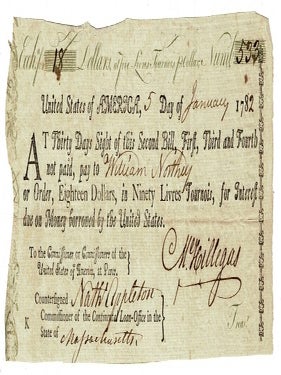 Exch^e 18 Dollars at five Livres Tournois p^r dollar Numb. 533
United States of AMERICA, 5 Day of January 1782
AT Thirty Days Sight of this Second Bill, First, Third and Fourth
not paid, pay to William Nothey
or Order, Eighteen Dollars, in Ninety Livres Tournois, for Interest
due on Money borrowed by the United States.
To the Commissioner or Commissioners of the
United States of America, at Paris.
Countersigned Nath^l Appleton
Commissioner of the Continental Loan-Office in the
K
State of Massachusetts